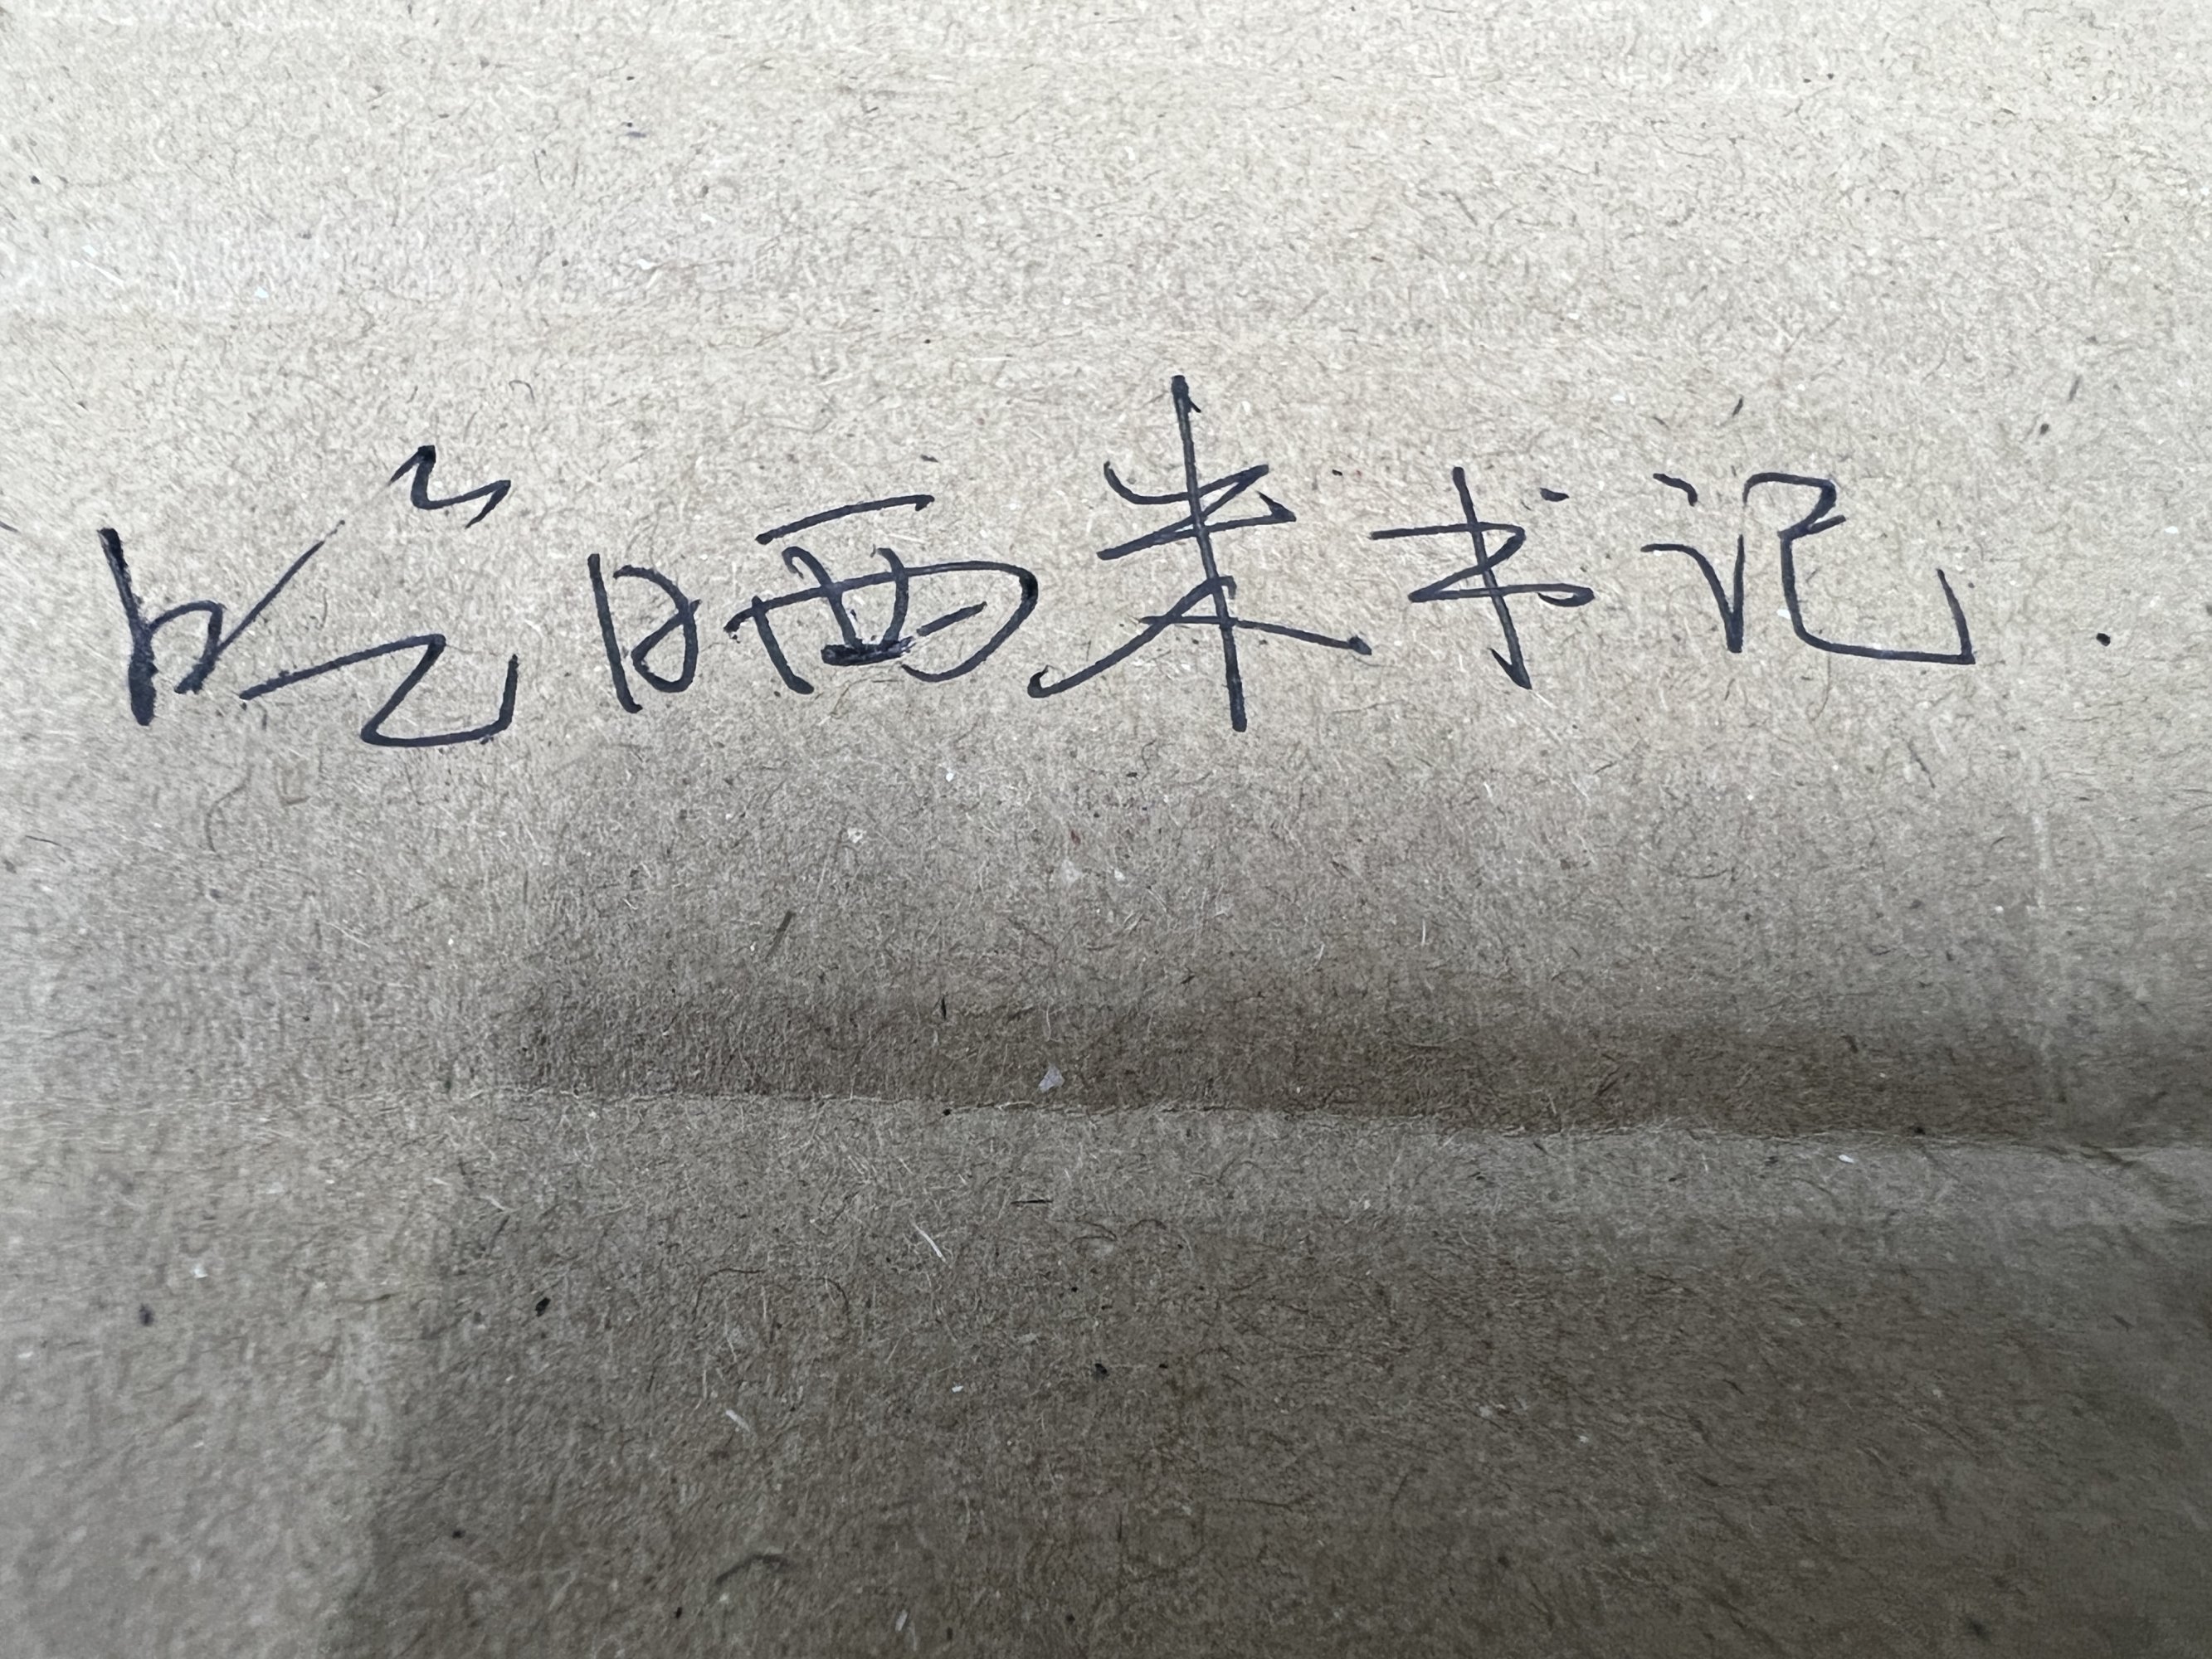 吃晒米书记.